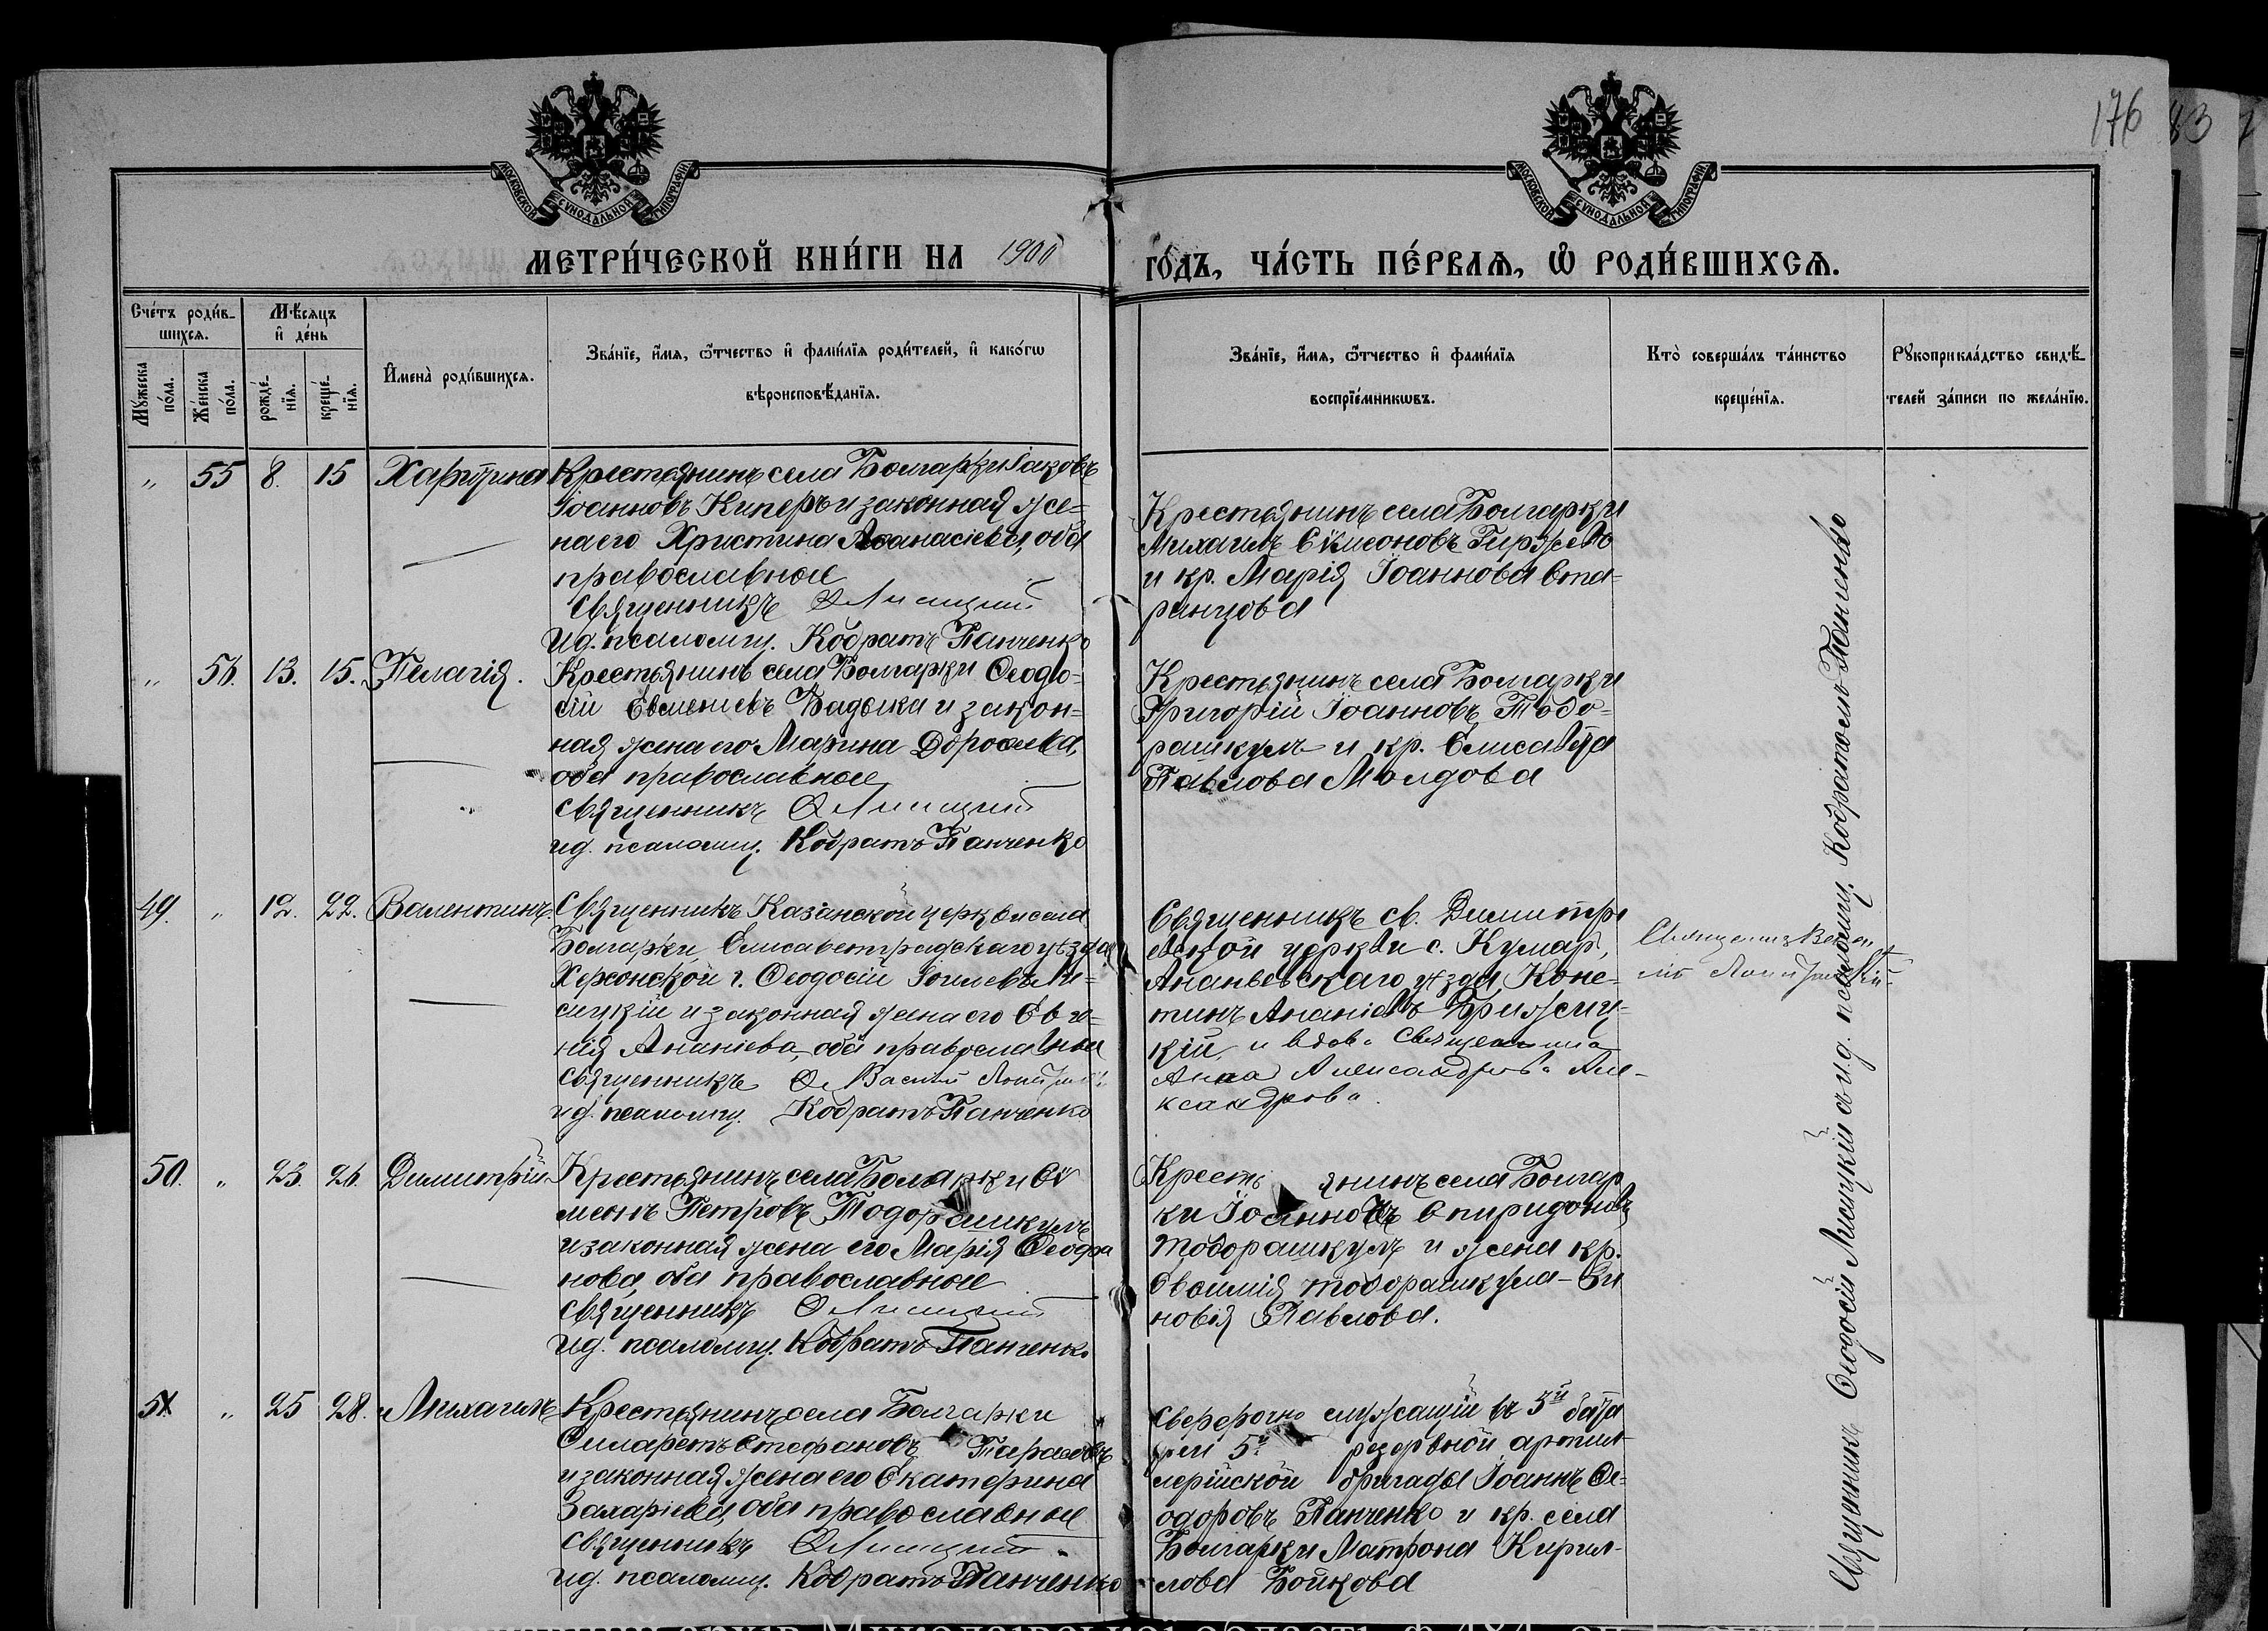 176
83
МОСКОВСКОЙ СУНОДАЛЬНОЙ ТИПОГРАФІИ
МОСКОВСКОЙ СУНОДАЛЬНОЙ ТИПОГРАФІИ
МЕТРИ́ЧЕСКОЙ КНИ́ГИ НА 1900
ГО́ДЪ, ЧА́СТЬ ПЕ́РВАѦ, Ѡ҆ РОДИ́ВШИХСѦ.
Сче́тъ роди́в-
шихсѧ.
Мѣ́сѧцъ
и҆ де́нь
Мꙋ́жеска по́ла.
Же́нска по́ла.
рожде́-нїѧ.
креще́-нїѧ.
И҆мена̀ роди́вшихсѧ.
Зва́нїе, и҆́мѧ, ѻ҆́тчество и҆ фами́лїѧ роди́телей, и҆ како́гѡ
вѣроисповѣ́данїѧ.
Зва́нїе, и҆́мѧ, ѻ҆́тчество и҆ фами́лїѧ
воспрїе́мникѡвъ.
Кто̀ соверша́лъ та́инство
креще́нїѧ.
Рꙋкоприкла́дство свидѣ́-
телей за́писи по жела́нїю.
" 55 8. 15 Харитина Крестьянинъ села Болгарки Іаковъ
Іоанновъ Киперъ и законная же-
на его Христина Аѳанасіева, оба
православные
Священникъ Ѳ Лисицкій
и.д. псаломщ. Кодратъ Панченко
Крестьянинъ села Болгарки
Михаилъ Симеоновъ Гиржевъ
и кр. Марія Іоаннова Ста-
ранцова
" 56. 13. 15. Пелагія. Крестьянинъ села Болгарки Ѳеодо-
сій Евменіевъ Бадыка и закон-
ная жена его Марина Дороѳеева,
оба православные
Священникъ Ѳ Лисицкій
и.д. псаломщ. Кодратъ Панченко
Крестьянинъ села Болгарки
Григорій Іоанновъ Тодо-
рашкулъ и кр. Елисавета
Павлова Молдова
49. " 12. 22. Валентинъ. Священникъ Казанской церкви села
Болгарки, Елисаветградскаго уѣзда,
Херсонской г. Ѳеодосій Іоилевъ Ли-
сицкій и законная жена его Евге-
нія Ананіева, оба православные
Священникъ Василій
и.д. псаломщ. Кодратъ Панченко
Священникъ св. Димитрі-
евской церкви с. Кумар,
Ананьевскаго уѣзда, Конс-
тинъ Ананіевъ Бржисиц-
кій, и вдова священника
Анна Александрова Але-
ксандрова.
Священникъ
50. " 23. 26. Димитрій. Крестьянинъ села Болгарки Си
меонъ Петровъ Тодорашкулъ
и законная жена его Марія Ѳеофа
нова, оба православные
Священникъ Ѳ Лисицкій
и.д. псаломщ. Кодратъ Панченко
Крестьянинъ села Болгар
ки Іоаннъ Спиридоновъ
Тодорашкулъ и жена кр.
Тодорашкула- Зи
новія Павлова.
51. " 25 28. Михаилъ Крестьянинъ села Болгарки
Филаретъ Стефановъ Тарасовъ
и законная жена его Екатерина
Захаріева, оба православные
Священникъ Ѳ Лисицкій.
и.д. псаломщ. Кодратъ Панченко
Сверхсрочно служащій въ 5й бата
реи 5й резервной артил-
лерійской бригады Іоаннъ Ѳе-
одоровъ Панченко и кр. села
Болгарки Матрона Кирил-
лова Бойкова
Священникъ Ѳеодосій Лисицкій и и.д. псаломщ. Кодратомъ Панченко